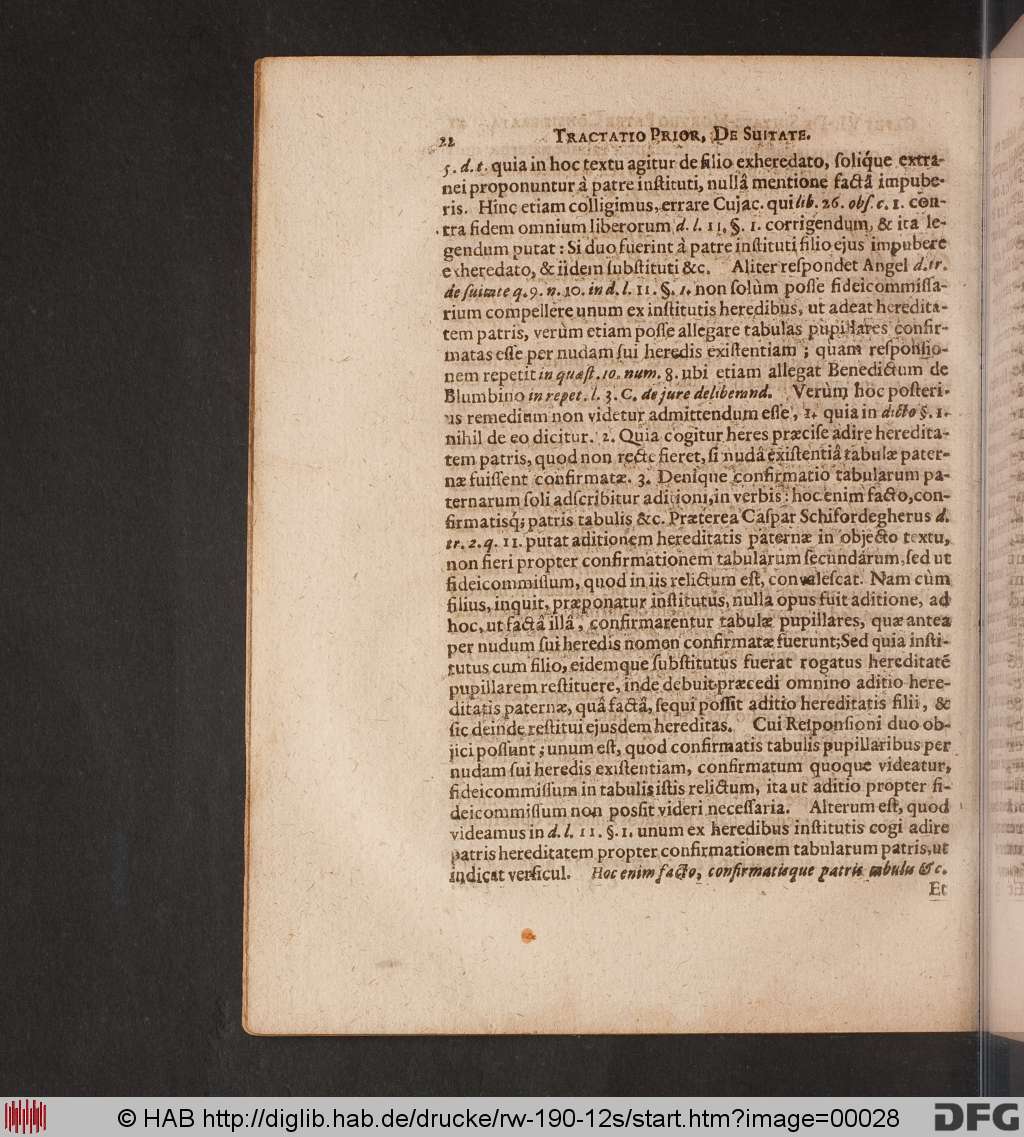 22 TRACTATIO PRIOR, DE SUITATE.
5. d. t. quia in hoc textu agitur de filio exheredato, soliq́ue extra-
nei proponuntur à patre instituti, nullâ mentione factâ impube-
ris. Hinc etiam colligimus, errare Cujac. qui lib. 26. obs. c. 1. con-
tra fidem omnium liberorum d. l. 11. §. 1. corrigendum, & ita le-
gendum putat: Si duo fuerint à patre instituti filio ejus impubere
exheredato, & iidem substituti &c. Aliter respondet Angel d. tr.
de suitate q. 9. n. 10. in d. l. 11. §. 1. non solùm posse fideicommissa-
rium compellere unum ex institutis heredibus, ut adeat heredita-
tem patris, verùm etiam posse allegare tabulas pupillares confir-
matas esse per nudam sui heredis existentiam; quam responsio-
nem repetit in quæst. 10. num. 8. ubi etiam allegat Benedictum de
Blumbino in repet. l. 3. C. de jure deliberand. Verùm hoc posteri-
us remedium non videtur admittendum esse, 1. quia in dicto §. 1.
nihil de eo dicitur. 2. Quia cogitur heres præcise adire heredita-
tem patris, quod non recte fieret, si nudâ existentiâ tabulæ pater-
næ fuissent confirmatæ. 3. Denique confirmatio tabularum pa-
ternarum soli adscribitur aditioni, in verbis: hoc enim facto, con-
firmatisq; patris tabulis &c. Præterea Caspar Schifordegherus d.
tr. 2. q. 11. putat aditionem hereditatis paternæ in objecto textu,
non fieri propter confirmationem tabularum secundarum, sed ut
fideicommissum, quod in iis relictum est, convalescat. Nam cùm
filius, inquit, præponatur institutus, nulla opus fuit aditione, ad
hoc, ut factâ illâ, confirmarentur tabulæ pupillares, quæ antea
per nudum sui heredis nomen confirmatæ fuerunt; Sed quia insti-
tutus cum filio, eidemque substitutus fuerat rogatus hereditatē
pupillarem restituere, inde debuit præcedi omnino aditio here-
ditatis paternæ, quâ factâ, sequi possit aditio hereditatis filii, &
sic deinde restitui ejusdem hereditas. Cui Responsioni duo ob-
jici possunt; unum est, quod confirmatis tabulis pupillaribus per
nudam sui heredis existentiam, confirmatum quoque videatur,
fideicommissum in tabulis istis relictum, ita ut aditio propter fi-
deicommissum non possit videri necessaria. Alterum est, quod
videamus in d. l. 11. §. 1. unum ex heredibus institutis cogi adire
patris hereditatem propter confirmationem tabularum patris, ut
indicat versicul. Hoc enim facto, confirmatisque patris tabulis &c.
Et
© HAB http://diglib.hab.de/drucke/rw-190-12s/start.htm?image=00028
DFG